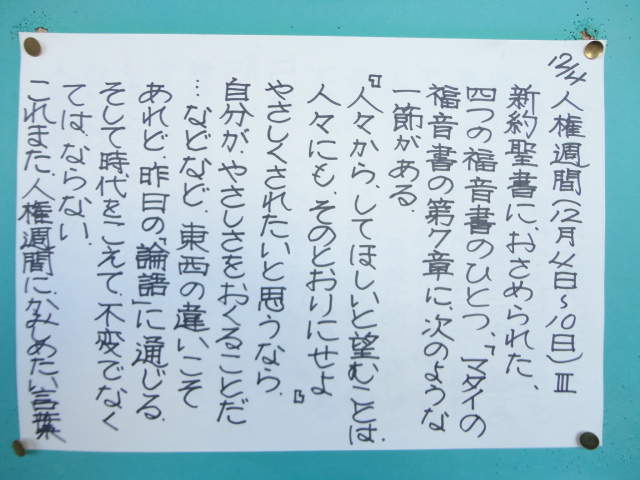 12/4 人権週間(12月4日~10日)Ⅲ
新約聖書に、おさめられた、
四つの福音書のひとつ、「マタイの
福音書の第7章に、次のような
一節がある.
『人々から、してほしいと望むことは、
人々にも、そのとおりにせよ』
やさしくされたいと思うなら、
自分が、やさしさをおくることだ
…などなど、東西の違いこそ
あれど、昨日の「論語」に通じる.
そして時代をこえて、不変でなく
ては、ならない.
これまた、人権週間に、かみめたい言葉